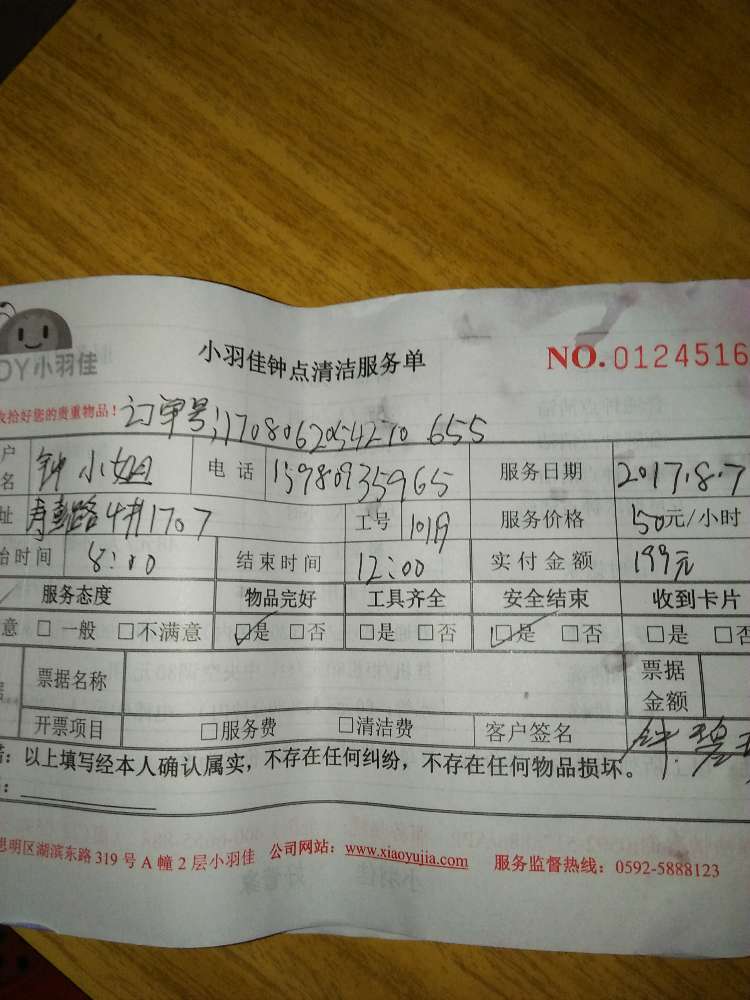 DY小羽佳
小羽佳钟点清洁服务单
NO.0124516
拾好您的贵重物品！订单号:
户名 钟小姐 电话 15980935965 服务日期 2017.8.7
址 路 1707 工号 服务价格 50元/小时
始时间 8:00 结束时间 12:00 实付金额 199元
服务态度 物品完好 工具齐全 安全结束 收到卡片
意 □ 一般 □不满意 □是 □否 □是 □否 □是 □否 □是 □否
票据名称 票据金额
开票项目 □服务费 □清洁费 客户签名 钟碧
：以上填写经本人确认属实，不存在任何纠纷，不存在任何物品损坏。
思明区湖滨东路319号A幢2层小羽佳 公司网站：www.xiaoyujia.com 服务监督热线：0592-5888123